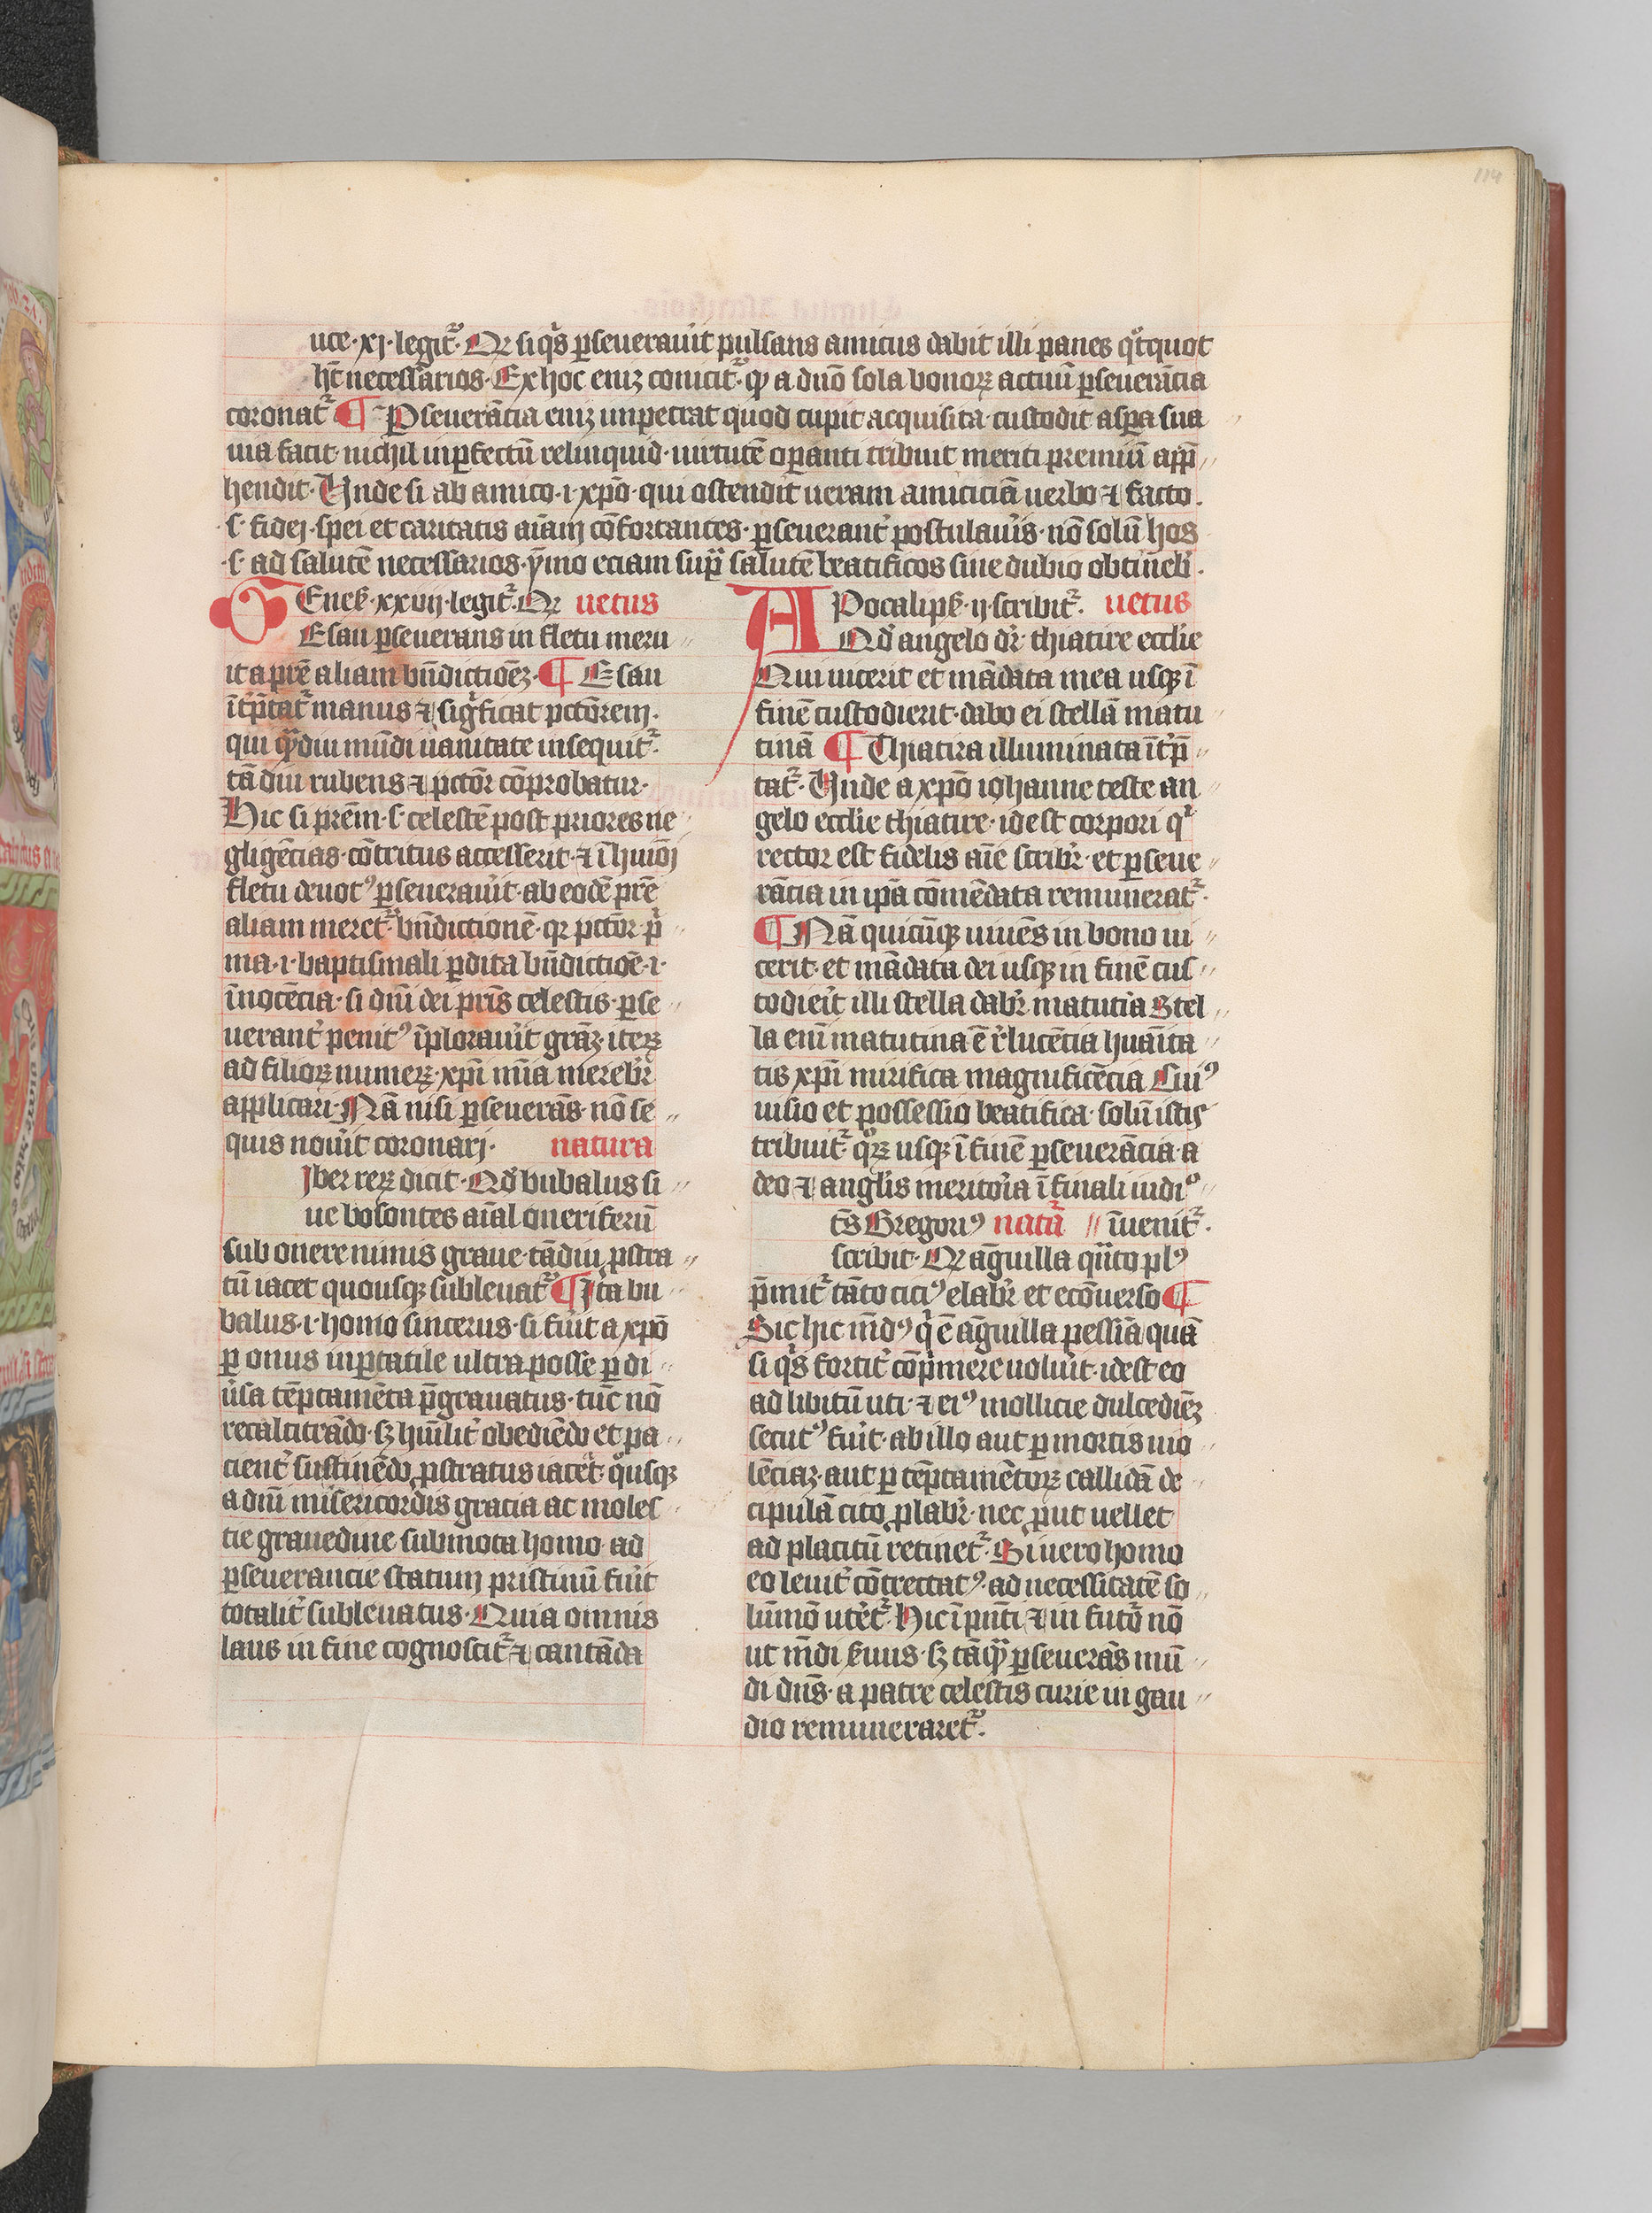 114
uce·xj·legit᷑· Qꝛ si qͥs ꝑseuerau̾it pulsans amicus dabit illi panes qͦtquot
hꝫ necess̾arios· Ex hoc eniꝫ conicit᷑· ꝙ a dn̄o sola bonoꝝ actuū ꝑseuerācia
coronat᷑ ¶ Pseuerācia eniꝫ inpetrat quod cupit acquisita· custodit asꝑa sua
uia facit· nichil inꝑfectū relinquid· uirtutē oꝑanti tribuit meriti premiū app̄〃
hendit· Unde si ab amico·i·xp̄o· qui ostendit ueram amiciciā uerbo ⁊ facto·
·s· fidej·spei et caritatis aīam cōfortantes· ꝑseuerant̾ postulau̾is· nō solū hos
·s· ad salutē necessarios·ẏmo eciam supͣ salutē beatificos sine dubio obtineb̾·
GEneẜ·xxvij·legit᷑·Qꝛ uetus
Esau ꝑseuerans in fletu meru〃
it a prē aliam bn̄dictiōeꝫ· ¶ Esau
īt̾p̄tat᷑ manus ⁊ sigͥficat pctōrem·
qui qͣ̄diu mūdi uanitate insequit᷑·
tā diu rubens ⁊ pctōr cōprobatur·
Hic si prēm·s·celestē post priores ne〃
gligēcias·cōtritus accesserit·⁊ ī huiōj
fletu deuotꝰ ꝑseuerau̾it·ab eodē prē
aliam meret᷑· bn̄dictionē·qꝛ pctōr·pͥ〃
ma·i·baptismali ꝑdita bn̄dictiōē·i·
īnocēcia·si diu̾ dei pris̄ celestis·ꝑse
uerant̾ penitꝰ īplorau̾it grāꝫ·iteꝝ
ad filioꝝ numeꝝ·xp̄i mīa mereb̾r
applicari·Nā nisi ꝑseuerās·nō se〃
quis nou̾it coronarj· natura
Iber reꝝ dicit·Qd̾ bubalus si〃
ue bosontes aīal oneriferū
sub onere nimis graue·tādiu ꝓstra〃
tū iacet quousqꝫ subleuat᷑ ¶ Ita bu〃
balus·i·homo sincerus·si fu̾it a xp̄o
ꝑ onus inportatile ultra posse ꝑ di〃
u̾sa tēptamēta p̄grauatus·tūc nō
recalcitrādo·sꝫ hūilit̾ obediēdo et pa〃
cient̾ sustinēdo ꝓstratus iacet̾·qͦusqꝫ
a diu̾ misericordis gracia ac moles〃
tie grauedine submota homo ad
ꝑseuerancie statum pristinū fu̾it
totalit̾ subleuatus·Quia omnis
laus in fine cognoscit᷑ ⁊ cantāda
APocalipẜ·ij·scribit᷑· uetus
Qd̾ angelo dr̄· thiatire eccl̾ie
Qui uicerit et mādata mea usqꝫ ī
finē custodierit·dabo ei stellā matu〃
tinā ¶ Thiatira illuminata īt̾p̄〃
tat᷑· Unde a xp̄o iohanne teste an〃
gelo eccl̾ie thiatire·id est corpori qͥ
rector est fidelis aīe scrib̾r·et ꝑseue〃
rācia in ip̄a cōmēdata remunerat᷑·
¶ Nā quicūqꝫ uiuēs in bono ui〃
cerit·et mādata dei usqꝫ in finē cus〃
todier̾it illi stella dab̾r matutīa Stel〃
la enī matutina ē r̾lucēcia hūaīta〃
tis xp̄i mirifica magnificēcia Cuiꝰ
uisio et possessio beatifica·solū istis
tribuit᷑ qͦꝝ usqꝫ ī finē ꝑseuerācia·a
deo ⁊ angl̾is meritor̾ia ī finali iudiͦ〃
ts̄ Gregoriꝰ natā 〃 īuenit᷑·
scribit·Qꝛ āguilla quāto plꝰ
p̄mit᷑ tāto ciciꝰ elab̾r et ecōuerso ¶
Sic hic mūdꝰ qͥ ē āguilla pessīa quā
si qͥs fortit̾ cōpͥmere uolu̾it·id est eo
ad libitū uti·⁊ eiꝰ mollicie dulcediēꝫ
secutꝰ fu̾it·ab illo aut ꝑ mortis uio〃
lēciaꝫ·aut ꝑ tēptamētoꝝ callidā de〃
cipulā cito ꝓlab̾r·nec ꝓut uellet
ad placitū retinet᷑· Si uero homo
eo leuit̾ cōtrectatꝰ·ad necessitatē so〃
lūmō utet̾᷑ Hic ī pn̄ti ⁊ in futͦo nō
ut mūdi s̾uus·sꝫ tāqͣ̄ ꝑseuerās mū〃
di dn̄s·a patre celestis curie in gau〃
dio remuneraret᷑·